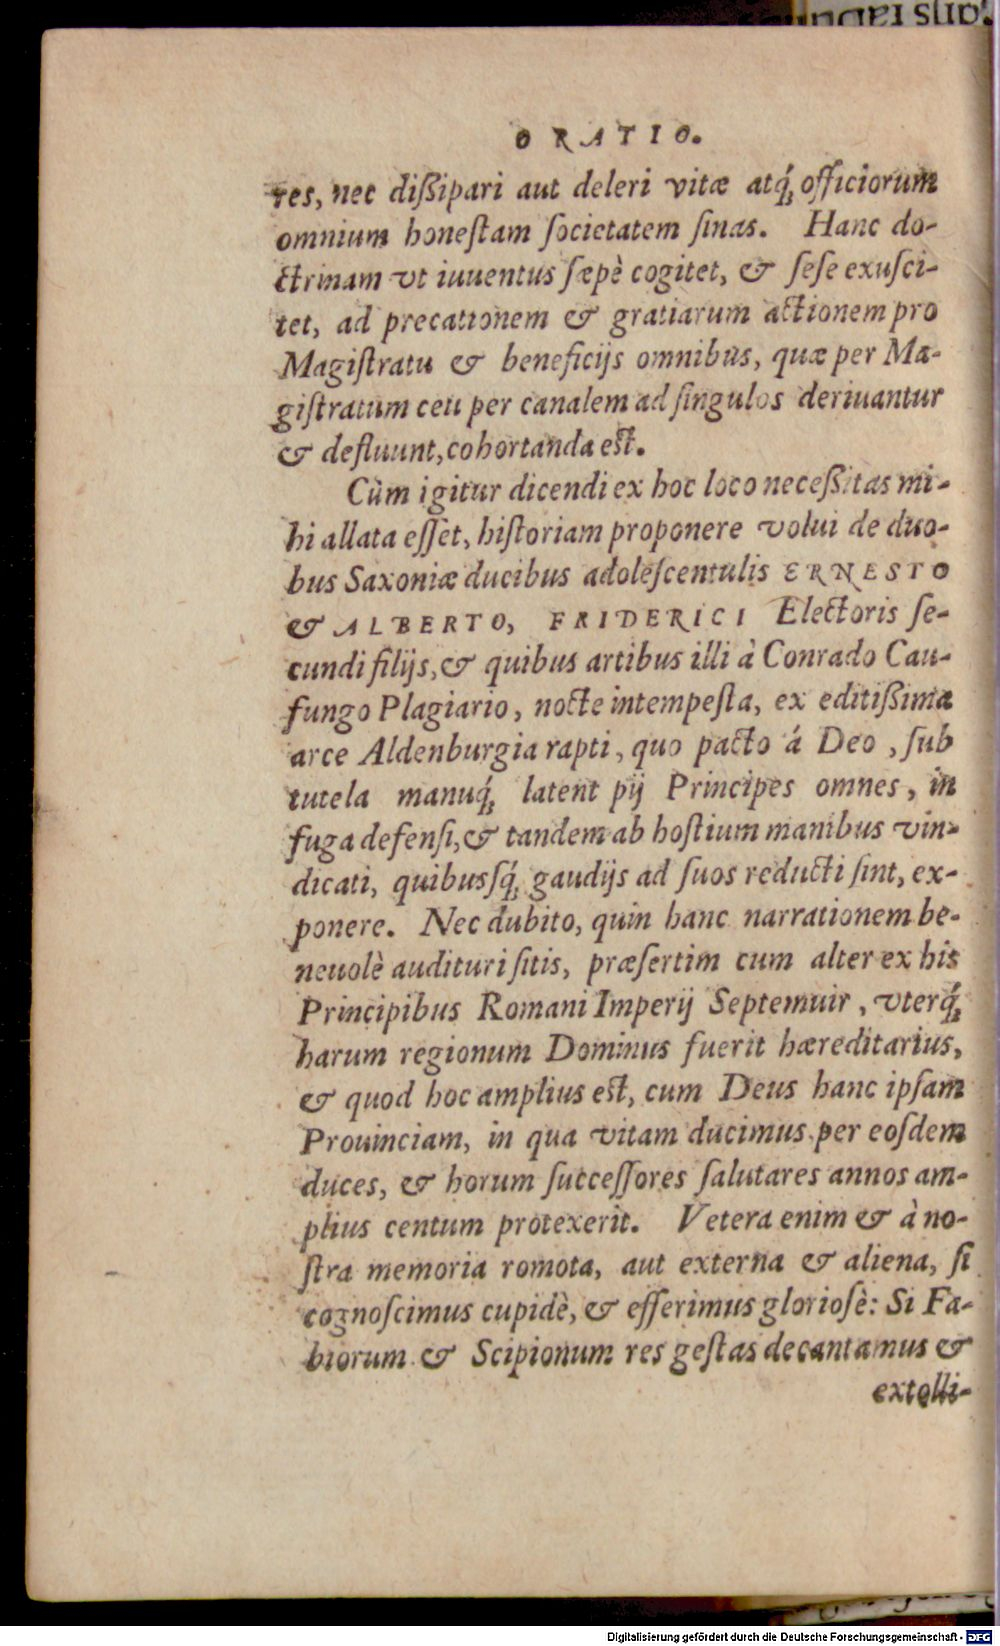 ORATIO.
res, nec dißipari aut deleri vitæ atq́; officiorum
omnium honeſtam ſocietatem ſinas. Hanc do-
ctrinam vt iuuentus ſæpè cogitet, & ſeſe exuſci-
tet, ad precationem & gratiarum actionem pro
Magiſtratu & beneficijs omnibus, quæ per Ma-
giſtratum ceu per canalem ad ſingulos deriuantur
& defluunt, cohortanda eſt.
Cùm igitur dicendi ex hoc loco neceßitas mi-
hi allata eſſet, hiſtoriam proponere volui de duo-
bus Saxoniæ ducibus adoleſcentulis ERNESTO
& ALBERTO, FRIDERICI Electoris ſe-
cundi filijs, & quibus artibus illi à Conrado Cau-
fungo Plagiario, nocte intempeſta, ex editißima
arce Aldenburgia rapti, quo pacto á Deo, ſub
tutela manuq́; latent pij Principes omnes, in
fuga defenſi, & tandem ab hoſtium manibus vin-
dicati, quibusſq́; gaudijs ad ſuos reducti ſint, ex-
ponere. Nec dubito, quin hanc narrationem be-
neuolè audituri ſitis, præſertim cum alter ex his
Principibus Romani Imperij Septemuir, vterq́;
harum regionum Dominus fuerit hæreditarius,
& quod hoc amplius eſt, cum Deus hanc ipſam
Prouinciam, in qua vitam ducimus per eoſdem
duces, & horum ſucceſſores ſalutares annos am-
plius centum protexerit. Vetera enim & à no-
ſtra memoria romota, aut externa & aliena, ſi
cognoſcimus cupidè, & efferimus glorioſè: Si Fa-
biorum & Scipionum res geſtas decantamus &
extolli-
Digitalisierung gefördert durch die Deutsche Forschungsgemeinschaft - DFG